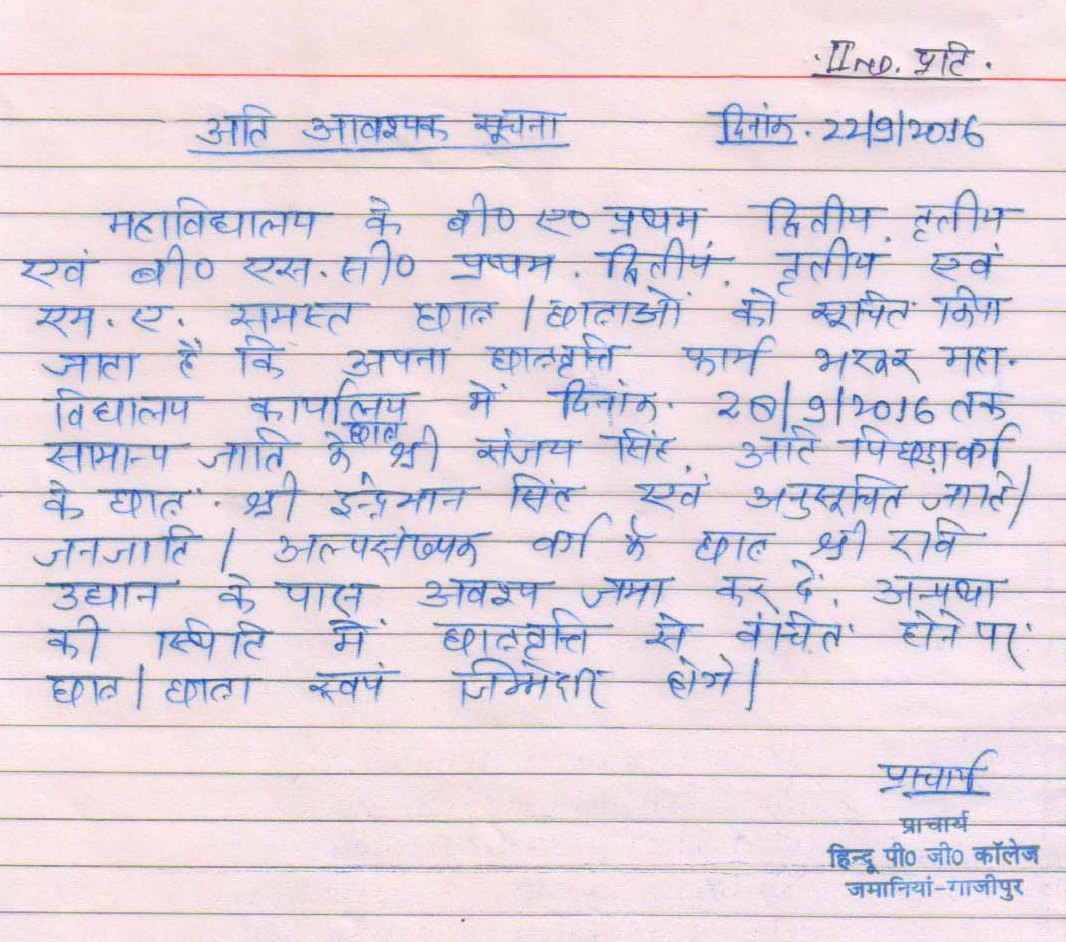 IInd. प्रति.
अति आवश्यक सूचना दिनांक. 22/9/2016
महाविद्यालय के बी० ए० प्रथम द्वितीय, तृतीय
एवं बी० एस. सी० प्रथम. द्वितीय, तृतीय एवं
एम. ए. समस्त छात्र / छात्राओं को सूचित किया
जाता है कि अपना छात्रवृत्ति फार्म भरकर महा.
विद्यालय कार्यालय में दिनांक. 28/9/2016 तक
सामान्य जाति के छात्र श्री संजय सिंह, अति पिछड़ा वर्ग
के छात्र. श्री इन्द्रभान सिंह एवं अनुसूचित जाति/
जनजाति / अल्पसंख्यक वर्ग के छात्र श्री रवि
उद्यान के पास अवश्य जमा कर दें, अन्यथा
की स्थिति में छात्रवृत्ति से वंचित होने पर
छात्र / छात्रा स्वयं जिम्मेदार होंगे।
प्राचार्य
प्राचार्य
हिन्दू पी० जी० कॉलेज
जमानियां-गाजीपुर